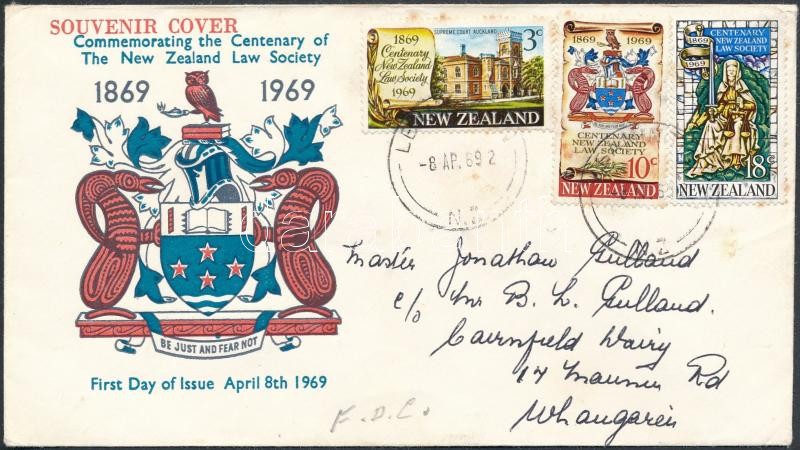 SOUVENIR COVER
Commemorating the Centenary of
The New Zealand Law Society
1869 1969
BE JUST AND FEAR NOT
First Day of Issue April 8th 1969
F.D.C.
1869
Centenary
New Zealand
Law Society
1969
SUPREME COURT AUCKLAND
3c
NEW ZEALAND
1869 1969
CENTENARY
NEW ZEALAND
LAW SOCIETY
10c
NEW ZEALAND
CENTENARY
NEW ZEALAND
LAW SOCIETY
1869
1969
18c
NEW ZEALAND
-8 AP. 69 2
N.Z
Z
Master Jonathan Pulland
c/o Mr B. L. Pulland.
Dairy
17 Rd
Whangarei